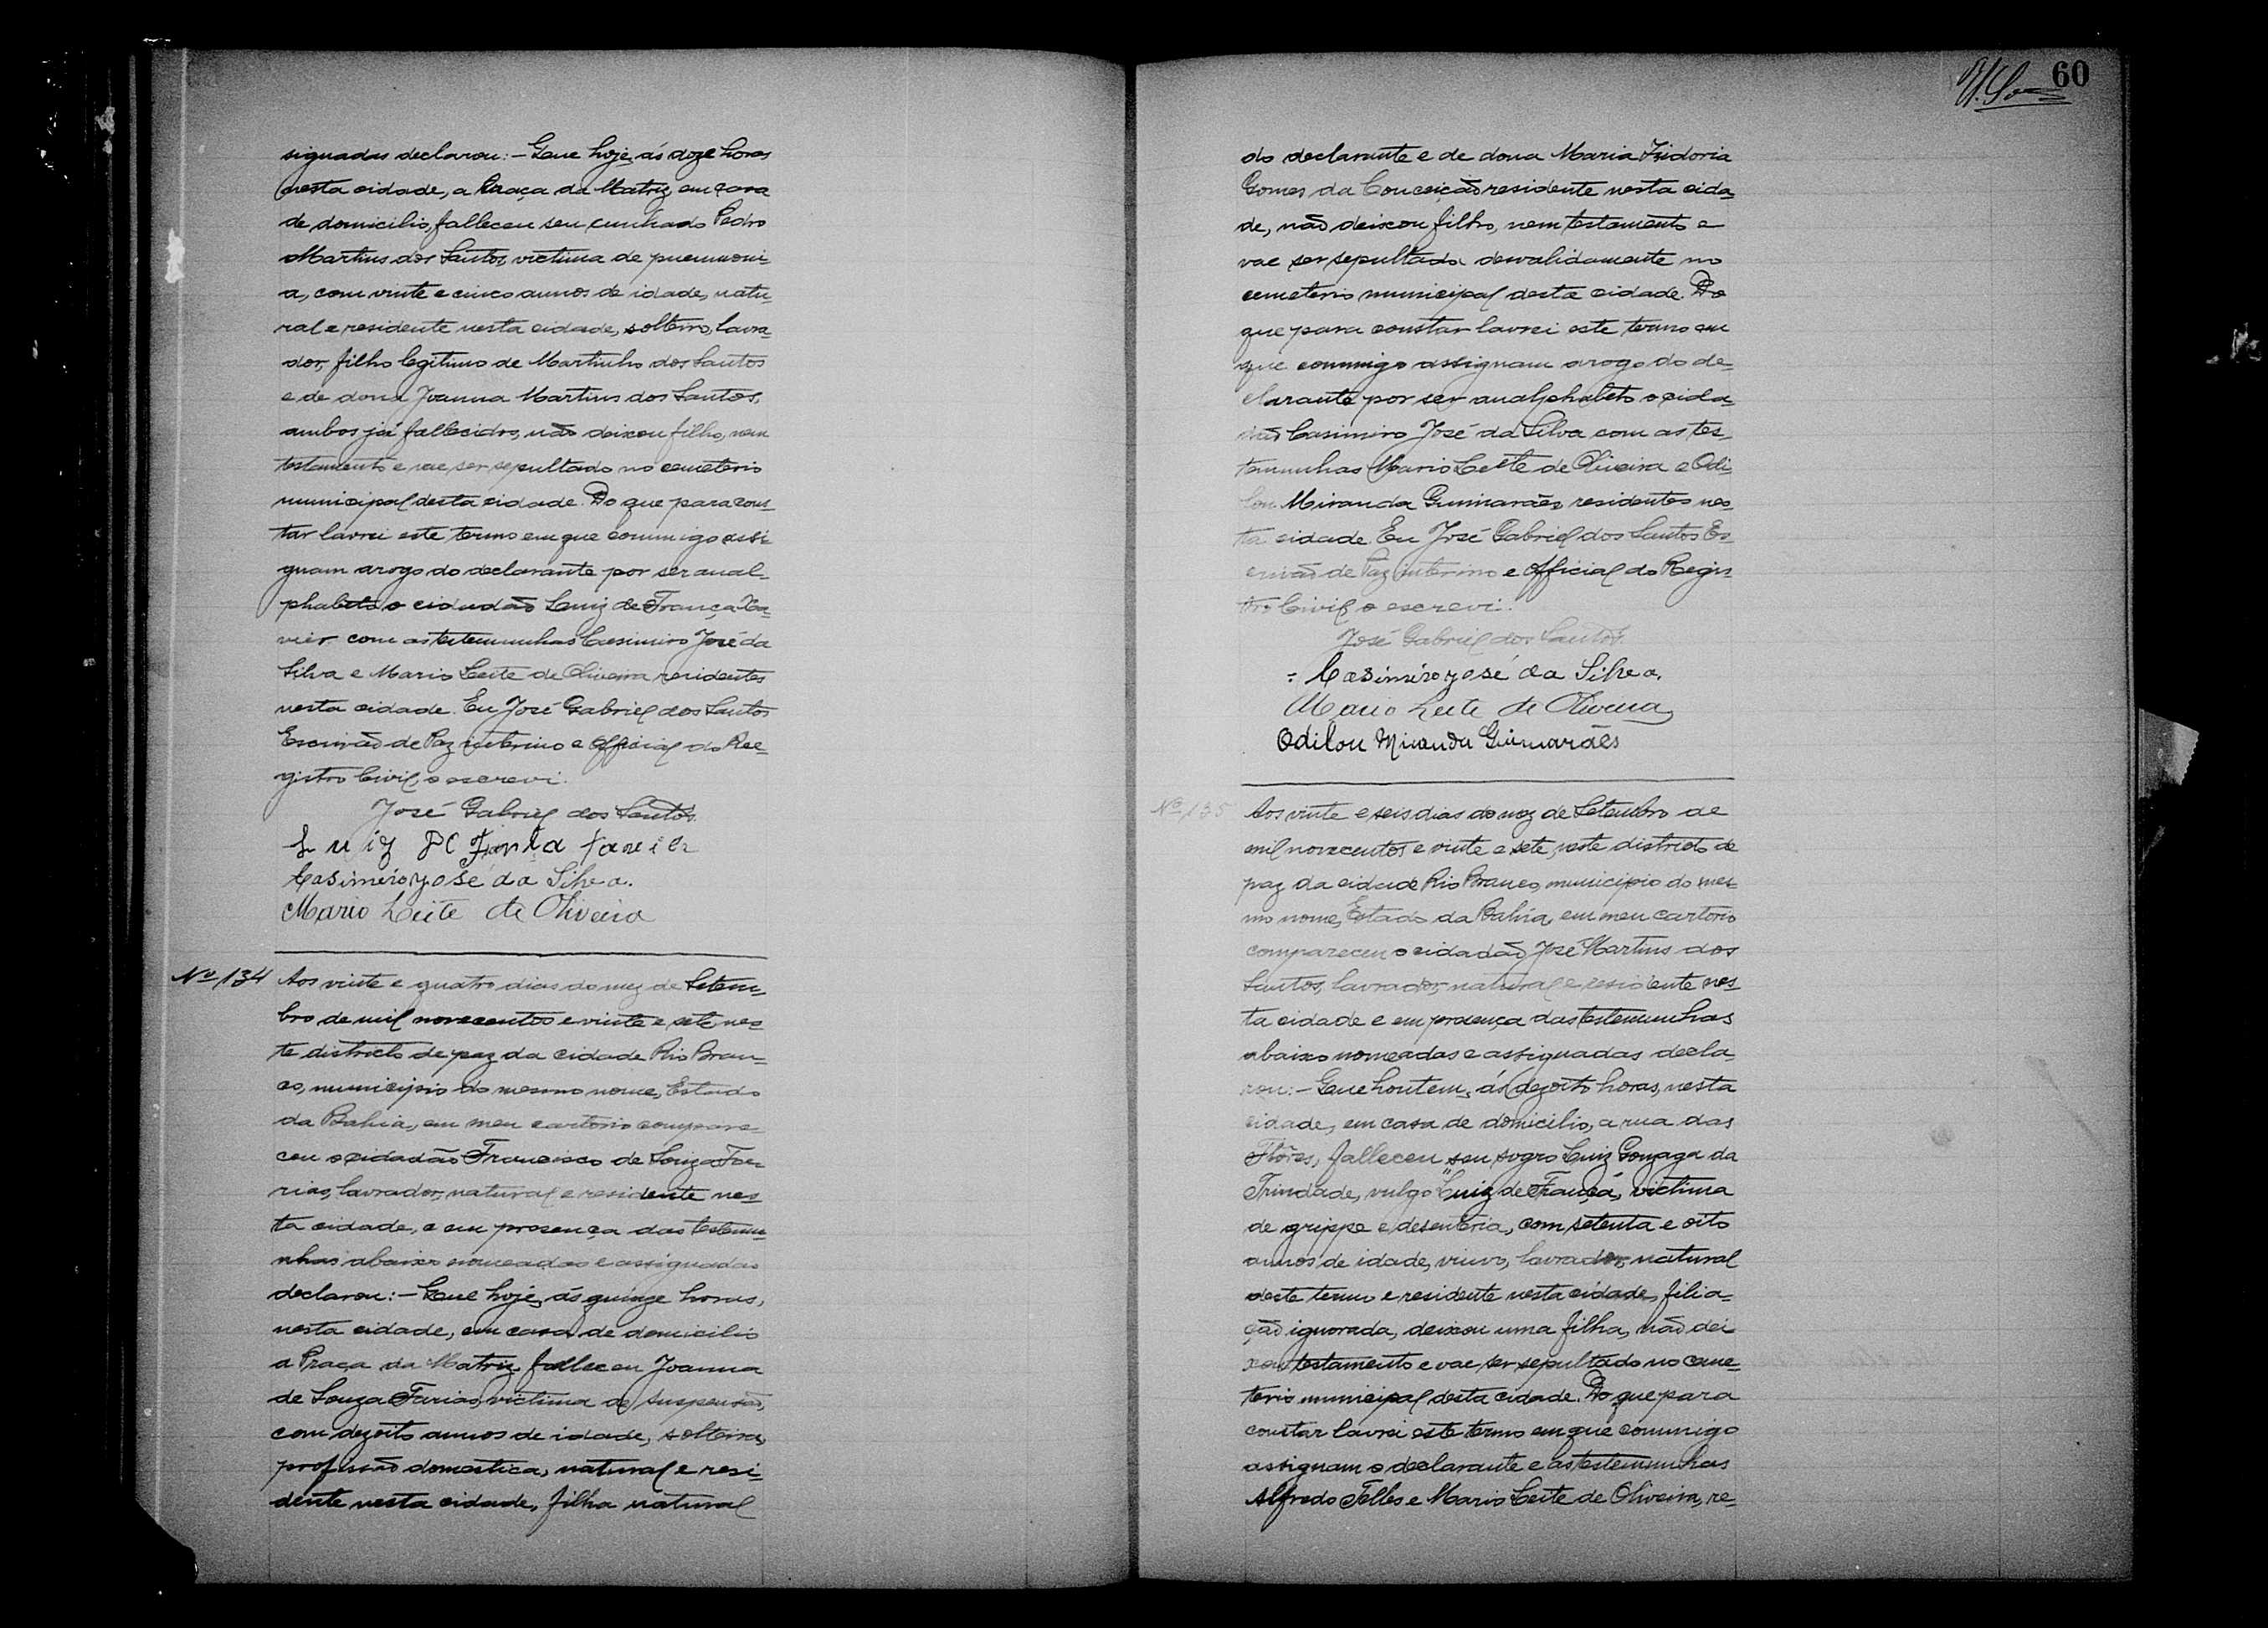 signadas declarou:- Que hoje, ás doze horas
nesta cidade, a Praça da Matriz, em casa
de domicilio, falleceu seu cunhado Pedro
Martins dos Santos, victima de pneumoni-
a, com vinte e cinco annos de idade, natu-
ral e residente nesta cidade, solteiro, lavra-
dor, filho legitimo de Martinho dos Santos
e de dona Joanna Martins dos Santos,
ambos já fallecidos, não deixou filho, nem
testamento e vae ser sepultado no cemeterio
municipal desta cidade. Do que para cons-
tar lavrei este termo em que commigo assi-
gnam arogo do declarante por ser anal-
phabeto o cidadão Luiz de França Xa-
vier com as testemunhas Casimiro José da
Silva e Mario Leite de Oliveira residentes
nesta cidade. Eu José Gabriel dos Santos
Escrivão de Paz interino e Official do Re-
gistro Civil o escrevi.
José Gabriel dos Santos.
Luiz de França Xavier
Casimiro José da Silva.
Mario Leite de Oliveira
Nº 134 Aos vinte e quatro dias do mez de Setem-
bro de mil novecentos e vinte e sete, nes-
te districto de paz da cidade Rio Bran-
co, municipio do mesmo nome, Estado
da Bahia, em meu cartorio compare-
ceu o cidadão Francisco de Souza Fa-
rias, lavrador, natural e residente nes-
ta cidade, e em presença das testemu-
nhas abaixo nomeadas e assignadas
declarou:- Que hoje, ás quinze horas,
nesta cidade, em casa de domicilio
a Praça da Matriz, falleceu Joanna
de Souza Farias, victima de suspensão,
com dezoito annos de idade, solteira,
profissão domestica, natural e resi-
dente nesta cidade, filha natural
60
do declarante e de dona Maria Izidoria
Gomes da Conceição residente nesta cida-
de, não deixou filho, nem testamento e
vae ser sepultada desvalidamente no
cemeterio municipal desta cidade. Do
que para constar lavrei este termo em
que commigo assignam arogo do de-
clarante por ser analphabeto o cida-
dão Casimiro José da Silva com as tes-
temunhas Mario Leite de Oliveira e Odi-
lon Miranda Guimarães residentes nes-
ta cidade. Eu José Gabriel dos Santos Es-
crivão de Paz interino e Official do Regis-
tro Civil o escrevi.
José Gabriel dos Santos.
Casimiro José da Silva.
Mario Leite de Oliveira
Odilon Miranda Guimarães
Nº 135 Aos vinte e seis dias do mez de Setembro de
mil novecentos e vinte e sete, neste districto de
paz da cidade Rio Branco, municipio do mes-
mo nome, Estado da Bahia, em meu cartorio
compareceu o cidadão José Martins dos
Santos, lavrador, natural e residente nes-
ta cidade e em presença das testemunhas
abaixo nomeadas e assignadas decla-
rou:- Que hontem, ás dezoito horas, nesta
cidade, em casa de domicilio, a rua das
Flôres, falleceu seu sogro Luiz Gonzaga da
Trindade, vulgo "Luiz de França", victima
de grippe e desenteria, com setenta e oito
annos de idade, viuvo, lavrador, natural
deste termo e residente nesta cidade, filia-
ção ignorada, deixou uma filha, não dei-
xou testamento e vae ser sepultado no ceme-
terio municipal desta cidade. Do que para
constar lavrei este termo em que commigo
assignam o declarante e as testemunhas
Alfredo Telles e Mario Leite de Oliveira, re-